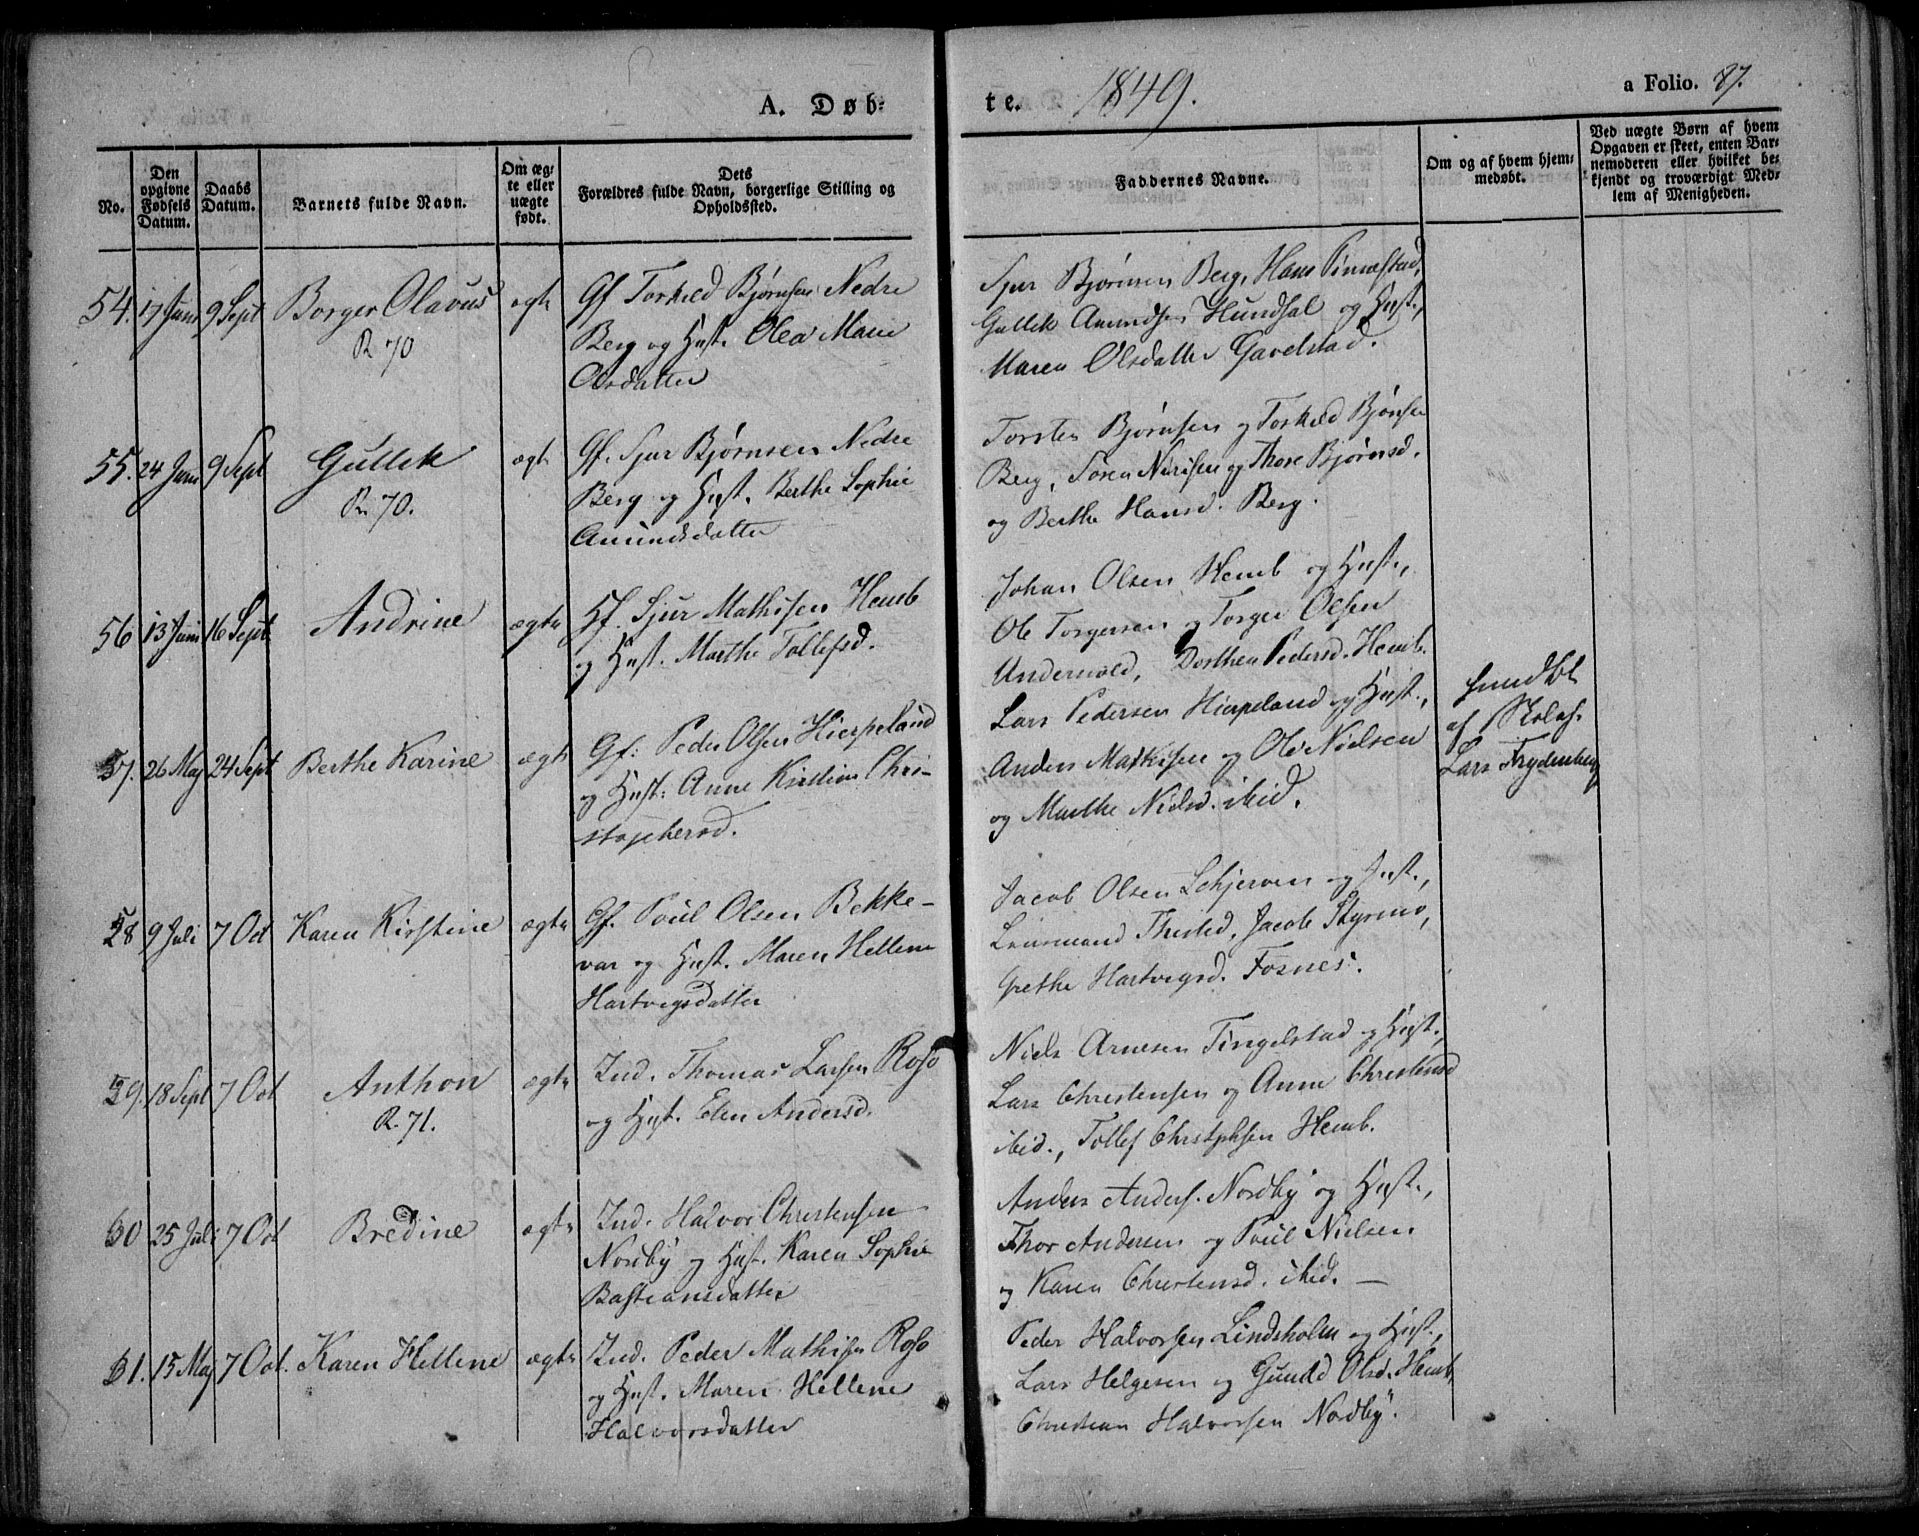 A. Døb-
te.
1849.
a Folio. 87.
No.
Den opgivne Fødsels Datum.
Daabs Datum.
Barnets fulde Navn.
Om ægte eller uægte født.
Dets
Forældres fulde Navn, borgerlige Stilling og
Opholdssted.
Faddernes Navne.
Om og af hvem hjem-
medøbt.
Ved uægte Børn af hvem
Opgaven er skeet, enten Bar-
nemoderen eller hvilket be-
kjendt og troværdigt Med-
lem af Menigheden.
54. 17 Juni 9 Sept Borger Olavus ægte
R 70
Gf Torkild Bjørnsen Nedre
Berg og Hust. Olea Marie
Olsdatter
Sjur Bjørnsen Berg, Hans
Gullik Amundsen Hundsal og Hust.,
Maren Olsdatter Gavelstad.
55. 24 Juni 9 Sept Gullik ægte
R. 70.
Gf. Sjur Bjørnsen Nedre
Berg og Hust. Berthe Sophie
Amundsdatter
Torsten Bjørnsen og Torkild Bjørnsen
Berg, Søren og Thore Bjørnsd.
og Berthe Hansd. Berg.
56 13 Juni 16 Sept Andrine ægte
Hf. Sjur Mathisen Hemb
og Hust. Marthe Tollefsd.
Johan Olsen Hemb og Hust.,
Ole Torgersen og Torger Olsen
Undersvold, Dorthea Pedersd. Hemb.
57. 26 Maj 24 Sept Berthe Karine ægte
Gf: Peder Olsen Hierpeland
og Hust: Anne Kirstine Chri-
stophersd.
Lars Pedersen Hierpeland og Hust.,
Anders Mathisen og Ole Nielsen
og Marthe Nielsd. ibid.
hjmdbt
af Skolef.
Lars Frydenberg
58 9 Juli 7 Oct Karen Kirstine ægte
Gf. Poul Olsen Bekke-
var og Hust. Maren Hellene
Hartvigsdatter
Jacob Olsen Schjerven og Hust.,
Lensmand Thisted, Jacob Styrmo,
Grethe Hartvigsd. Fosnes.
59. 18 Sept 7 Oct Anthon ægte
R. 71.
Ind. Thomas Larsen Roso
og Hust. Elen Andersd.
Niels Arnesen Tingelstad og Hust.,
Lars Christensen og Anne Christensd
ibid., Tollef Christophsen Hemb.
60 25 Juli 7 Oct Bredine ægte
Ind. Halvor Christensen
Nordby og Hust. Karen Sophie
Bastiansdatter
Anders Anders. Nordby og Hust.,
Thor Andersen og Poul Nielsen
og Karen Christensd. ibid. —
61. 15 Maj 7 Oct. Karen Hellene ægte
Ind. Peder Mathisen Roso
og Hust. Maren Hellene
Halvorsdatter
Peder Halvorsen Lindsholm og Hust.,
Lars Helgesen og Gunild Olsd. Hemb,
Christian Halvorsen Nordby.